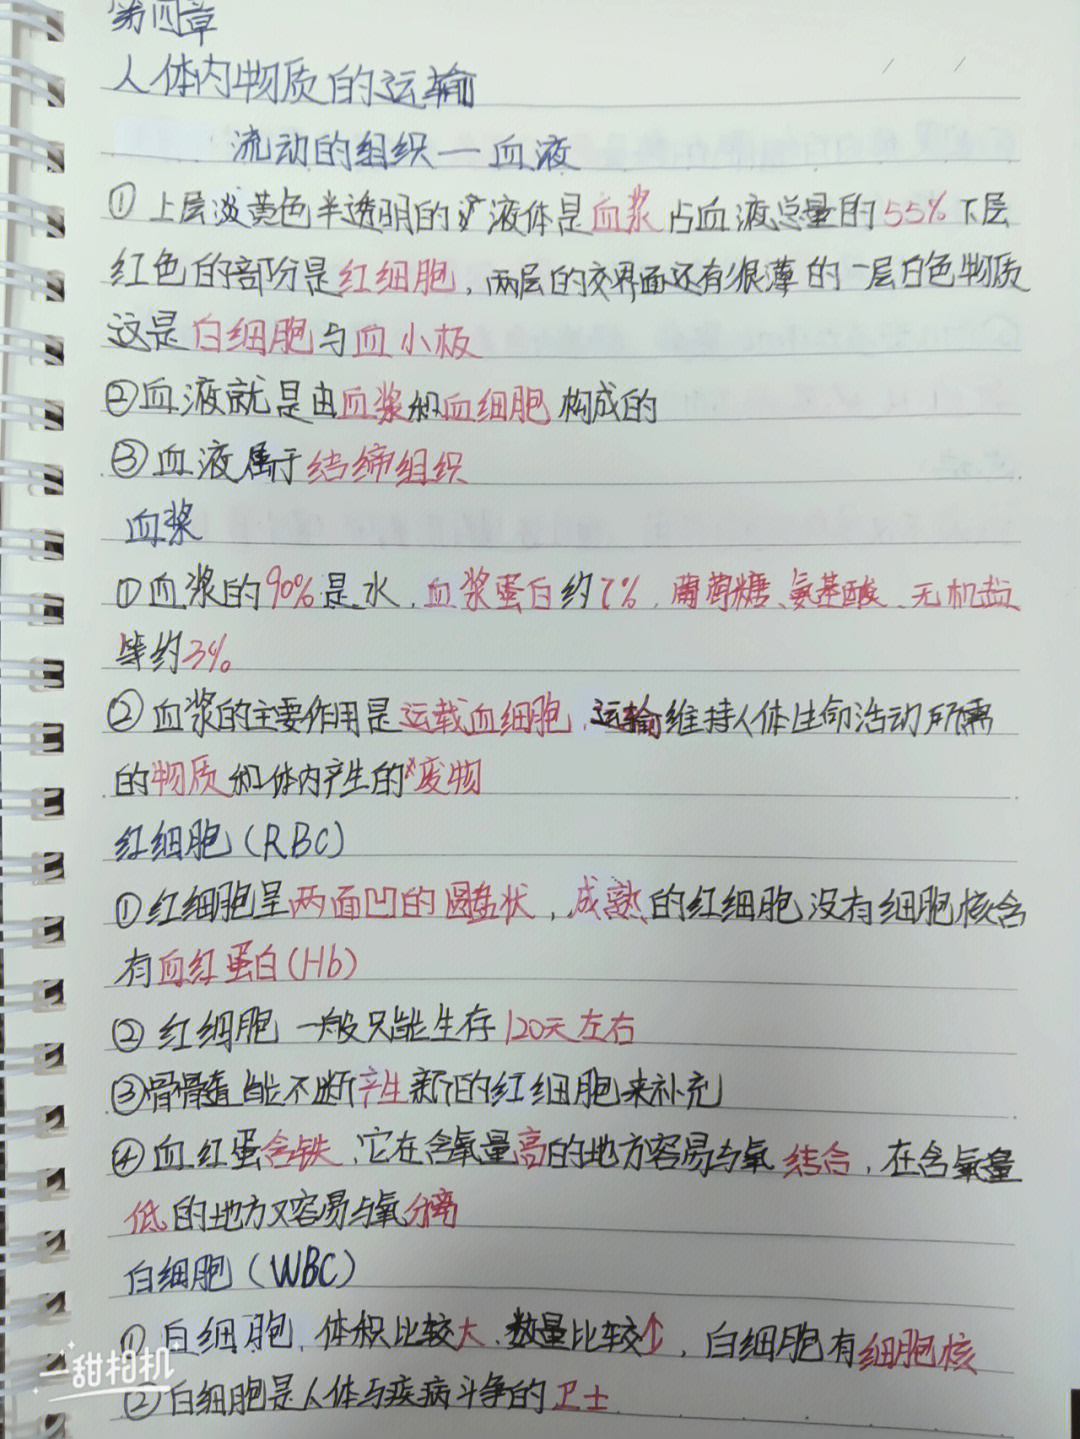 第四章
人体内物质的运输
流动的组织一血液
①上层淡黄色半透明的液体是血浆占血液总量的55%下层
红色的部分是红细胞,两层的交界面还有很薄的一层白色物质
这是白细胞与血小板
②血液就是由血浆和血细胞构成的
③血液属于结缔组织
血浆
①血浆的90%是水、血浆蛋白约7%、葡萄糖、氨基酸、无机盐
等约3%
②血浆的主要作用是运载血细胞、运输维持人体生命活动所需
的物质和体内产生的废物
红细胞(RBC)
①红细胞呈两面凹的圆盘状,成熟的红细胞没有细胞核含
有血红蛋白(Hb)
②红细胞一般只能生存120天左右
③骨髓能不断产生新的红细胞来补充
④血红蛋含铁、它在含氧量高的地方容易与氧结合,在含氧量
低的地方又容易与氧分离
白细胞(WBC)
①白细胞、体积比较大、数量比较,白细胞有细胞核
②白细胞是人体与疾病斗争的卫士
一甜相机